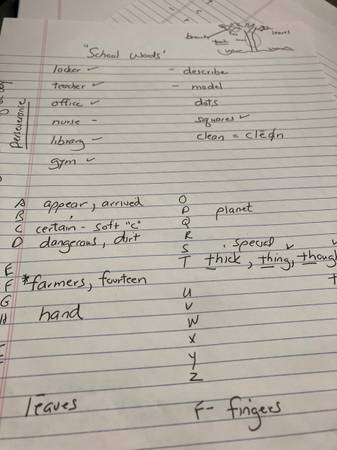 branch
leaves
"School Words"
locker ✓ - describe
teacher ✓ - model
office ✓ dots
nurse - squares ✓
library - clean = clēan
gym ✓
Perseverance
A appear, arrived
B
C certain - soft "c"
D dangerous, dirt
E
F *farmers, fourteen
G
H hand
O
P planet
Q
R
S special
T thick, thing, though
U
V
W
X
Y
Z
leaves
F- fingers